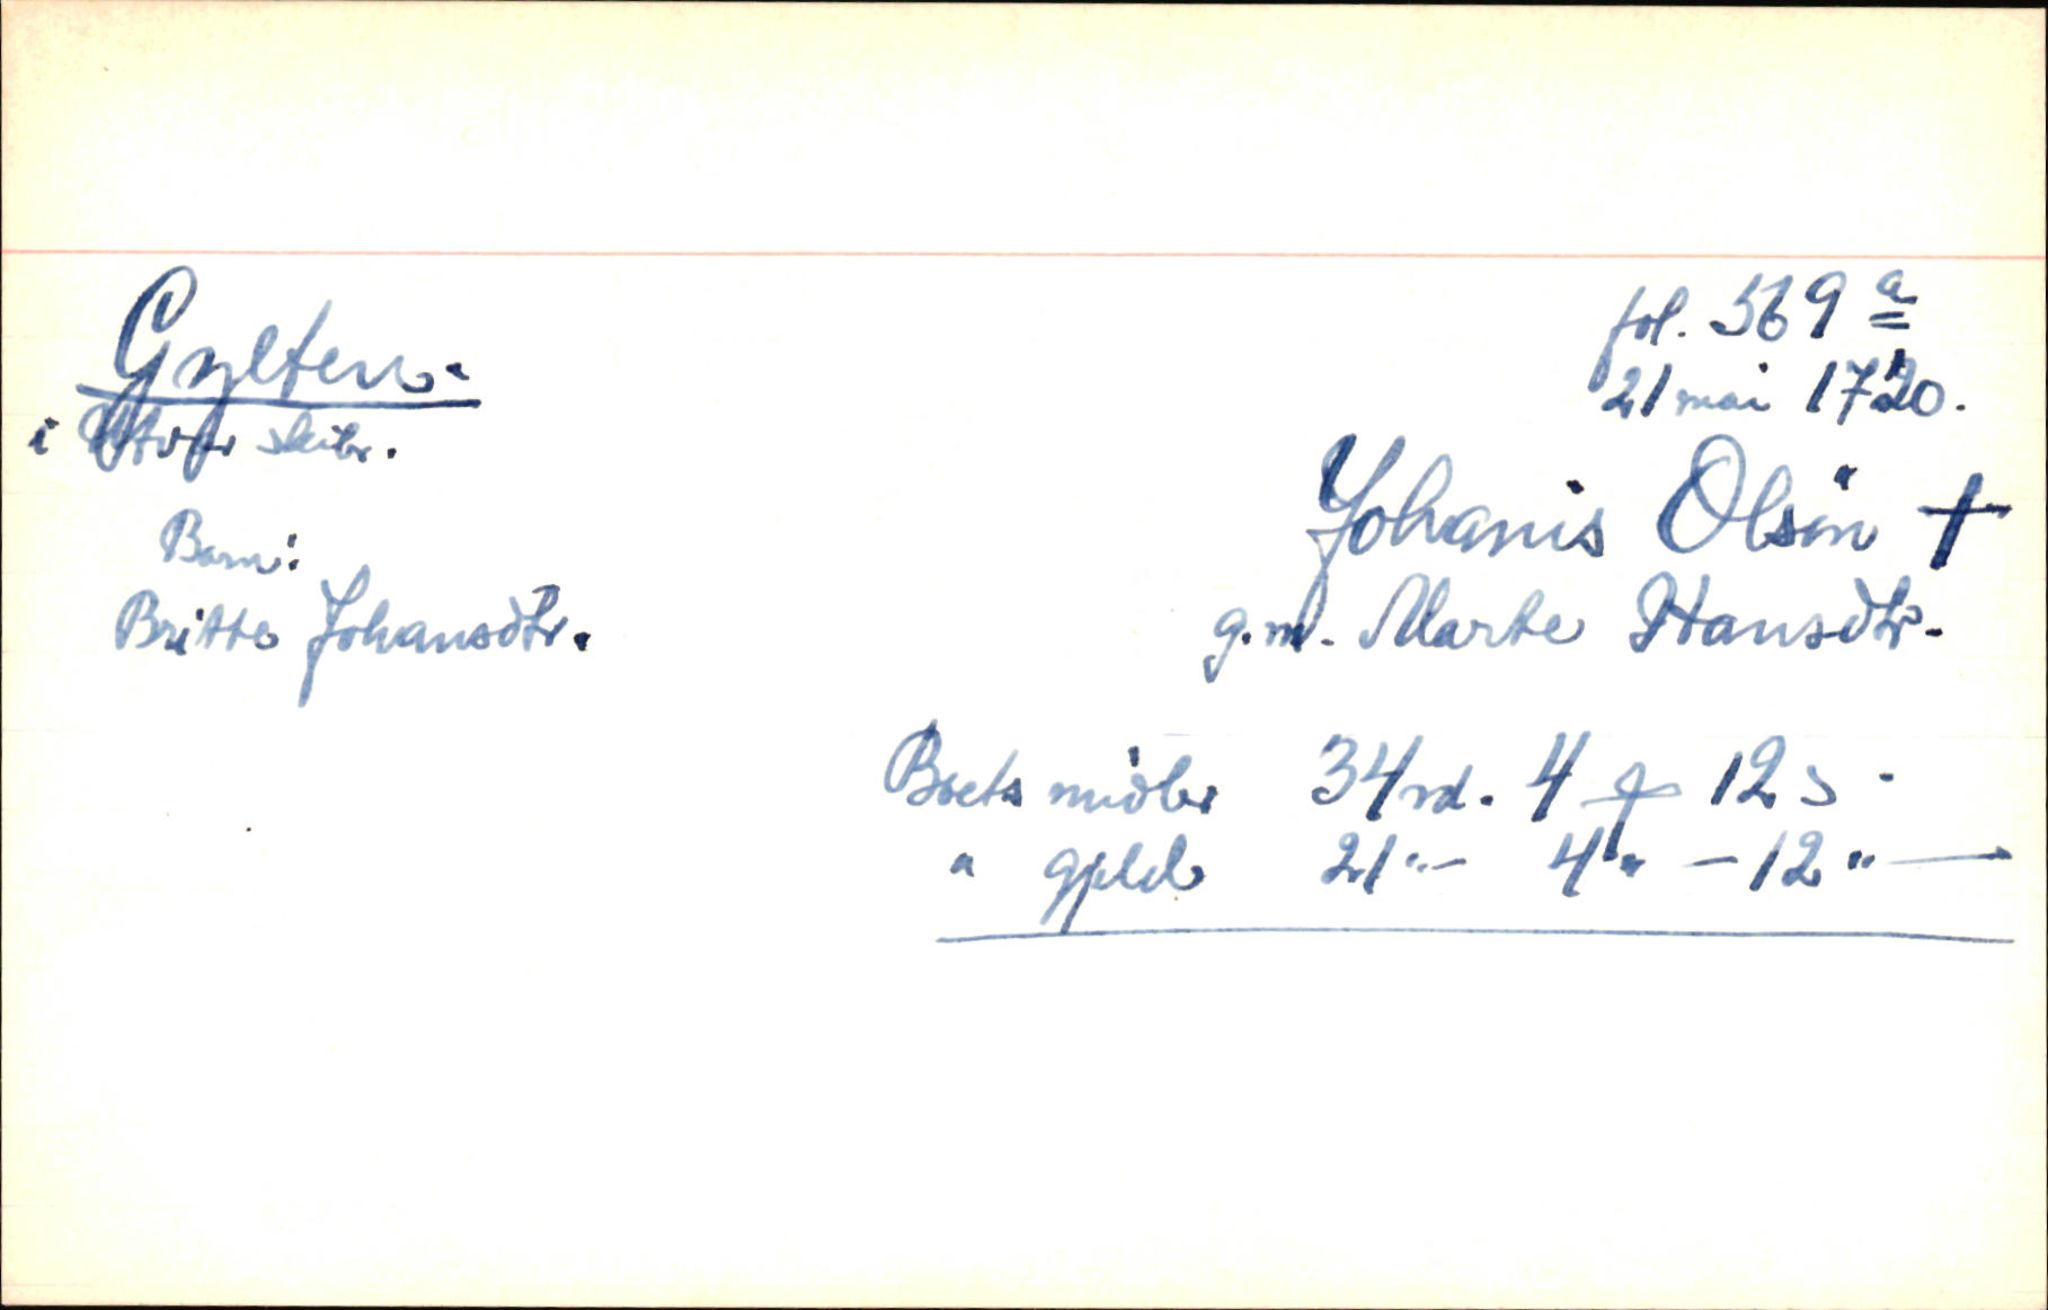 Gylten.
i Utvær skibr.
Barn:
Britte Johansdtr.
fol. 569 a
21 mai 1720.
Johanis Olsön †
g.m. Marte Hansdtr.
Boets midler 34 rd. 4 12 s
" gjeld 21 " - 4 " - 12 " —